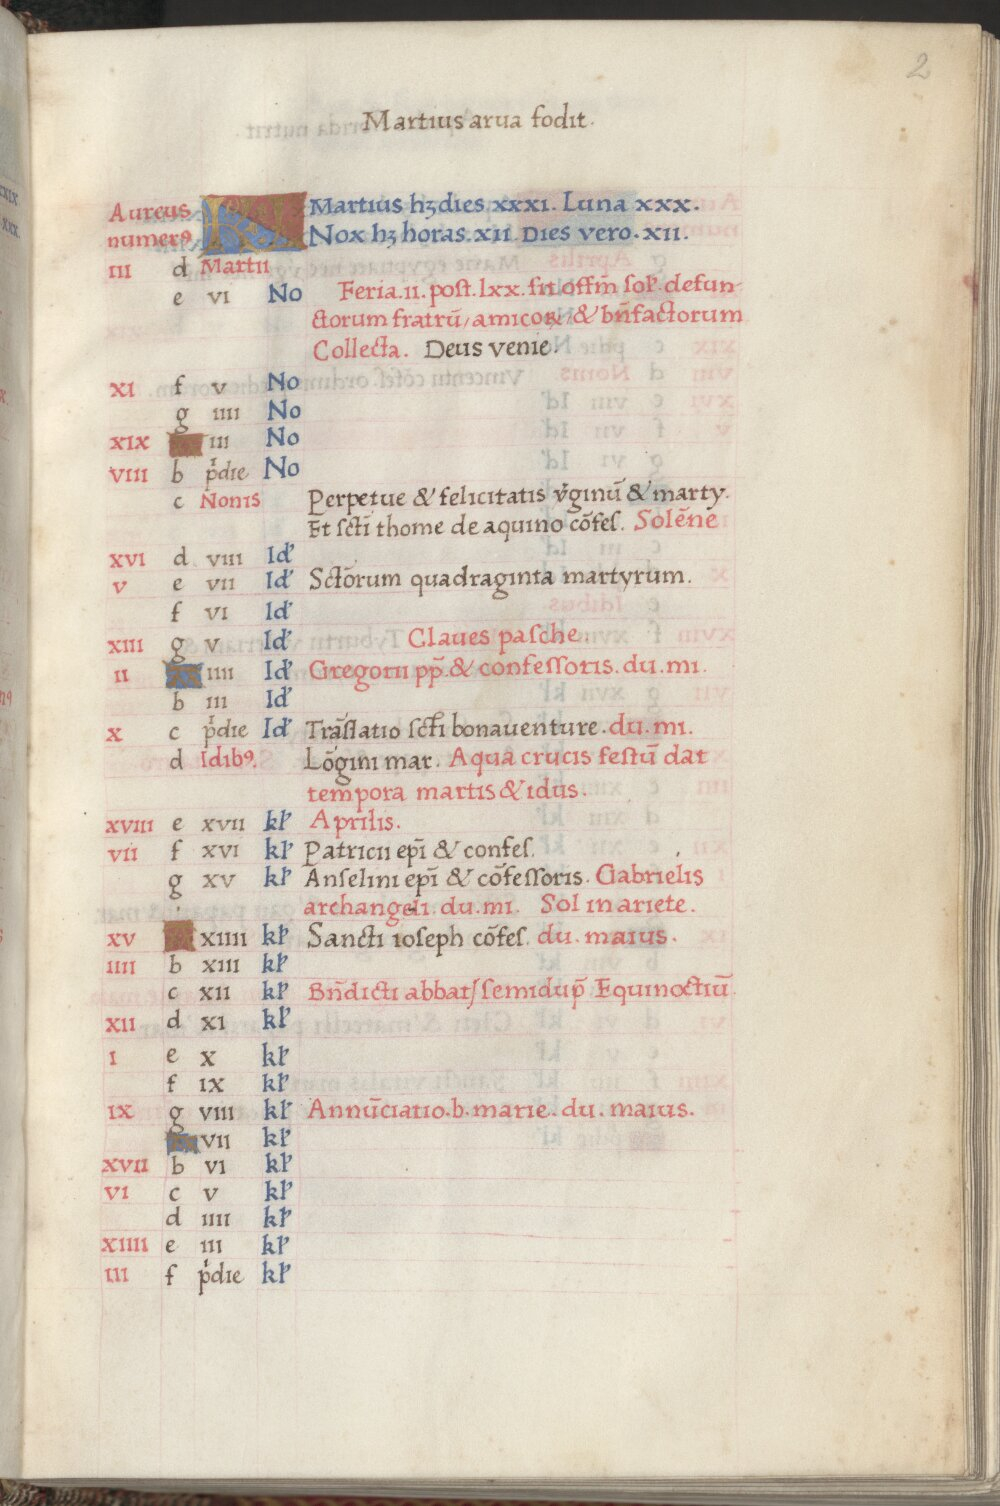 2
Martius arua fodit.
Aureus KL Martius hꝫ dies xxxi. Luna xxx.
numerꝰ Nox hꝫ horas. xii. Dies vero. xii.
iii d Martii
e vi No Feria. ii. post. lxx. fit offm̄ sol̓. defun-
ctorum fratrū, amicoꝝ & bn̄factorum
Collecta. Deus venie.
xi f v No
g iiii No
xix A iii No
viii b p̓die No
c Nonis Perpetue & felicitatis v̓ginū & marty.
Et scti̅ thome de aquino cōfes. Solēne
xvi d viii Id̓
v e vii Id̓ Sctōrum quadraginta martyrum.
f vi Id̓
xiii g v Id̓ Claues pasche
ii A iiii Id̓ Gregorii pp̄. & confessoris. du. mi.
b iii Id̓
x c p̓die Id̓ Trāslatio scti̅ bonauenture. du. mi.
d Idibꝰ. Lōgini mar. Aqua crucis festū dat
tempora martis & idus.
xviii e xvii kl̓ Aprilis.
vii f xvi kl̓ Patricii epi̅ & confes.
g xv kl̓ Anselini epi̅ & cōfessoris. Gabrielis
archangeli. du. mi. Sol in ariete.
xv A xiiii kl̓ Sancti ioseph cōfes. du. maius.
iiii b xiii kl̓
c xii kl̓ Bn̄dicti abbat/ semidup̄ Equinoctiū
xii d xi kl̓
i e x kl̓
f ix kl̓
ix g viii kl̓ Annūciatio. b. marie. du. maius.
A vii kl̓
xvii b vi kl̓
vi c v kl̓
d iiii kl̓
xiiii e iii kl̓
iii f p̓die kl̓